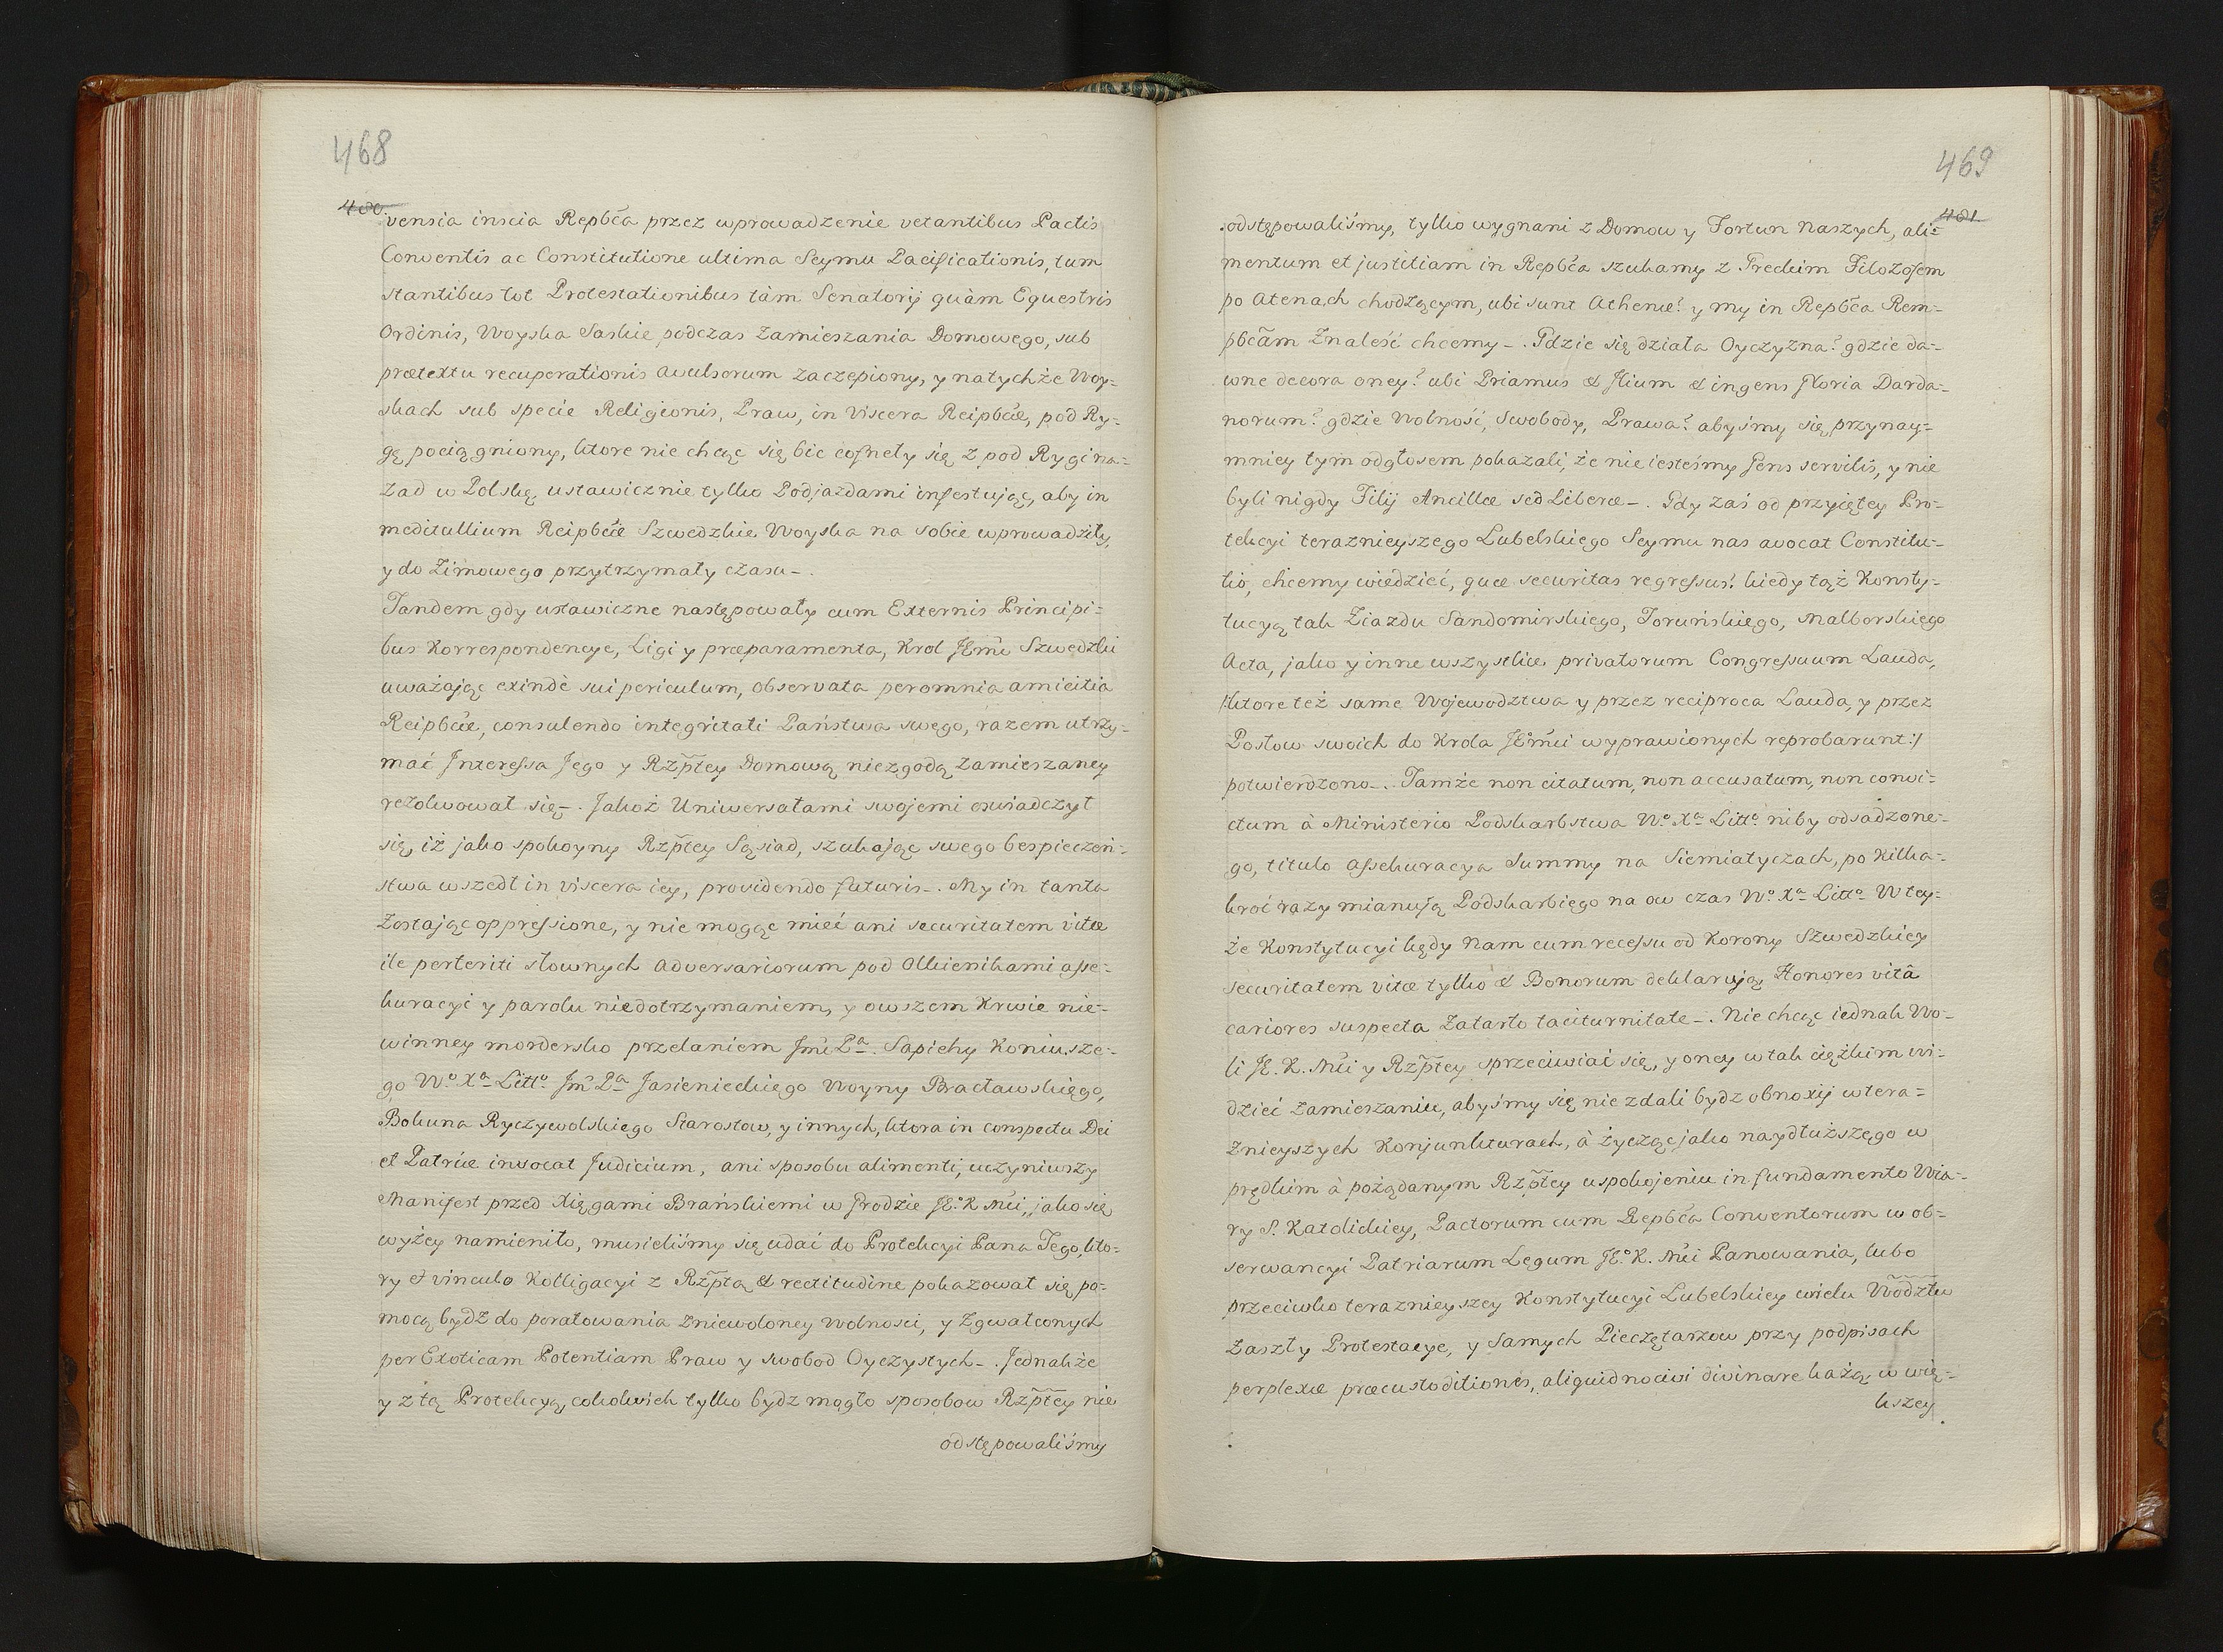 468
480.
vensia inscia Repbĉa przez wprowadzenie vetantibus Pactis
Conventis ac Constitutione ultima Seymu Pacificationis, tum
stantibus tot Protestationibus tàm Senatorij quàm Equestris
Ordinis, Woyska Saskie podczas zamieszania Domowego, sub
prætextu recuperationis avulsorum zaczepiony, y na tychże Woy-
skach sub specie Religionis, Praw, in viscera Reipbĉæ, pod Ry-
gę pociągniony, ktore nie chcąc się bic cofnely się z pod Rygi na-
zad w Polskę ustawicznie tylko Podjazdami infestując, aby in
meditullium Reipbĉæ Szwedzkie Woyska na sobie wprowadziły,
y do Zimowego przytrzymały czasu-.
Tandem gdy ustawiczne następowały cum Externis Principi=
bus Korrespondencye, Ligi y præparamenta, Krol JEm̃c Szwedzki
uważając exindè sui periculum, observata per omnia amicitia
Reipbĉæ, consulendo integritati Państwa swego, razem utrzy-
mać Jnteressa Jego y Rzp̃tey Domową niezgodą zamieszaney
rezolwował się-. Jakoż Uniwersałami swojemi oswiadczył
się, iż jako spokoyny Rzp̃tey Sąsiad, szukając swego bespieczeń-
stwa wszedł in viscera iey, providendo futuris-. My in tanta
zostając oppressione, y nie mogąc mieć ani securitatem vitæ
ile perteriti słownych Adversariorum pod Olkienikami asse-
kuracyi y parolu niedotrzymaniem, y owszem Krwie nie-
winney mordersko przelaniem Jm̃ci Pª. Sapiehy Koniusze-
go Wº Xª Littº Jm̃ Pª Jasienieckiego Woyny Bracławskięgo,
Bokuna Ryczywolskiego Starostow, y innych, ktora in conspectu Dei
et Patriæ invocat Judicium, ani sposobu alimenti, uczyniwszy
Manifest przed Xięgami Brańskiemi w Grodzie JEº K Mc̃i, jako się
wyżey namieniło, musieliśmy się udać do Protekcyi Pana Tego, kto-
ry et vinculo Kolligacyi z Rzp̃tą & rectitudine pokazował się po-
mocą bydz do poratowania zniewoloney wolności, y zgwałconych
per Exoticam Potentiam Praw y swobod Oyczystych-. Jednakże
y z tą Protekcyą, cokolwiek tylko bydz mogło sposobow Rzp̃tey nie
odstępowaliśmy
469
481.
odstępowaliśmy, tylko wygnani z Domow y Fortun naszych, ali=
mentum et justitiam in Repbĉa szukamy z Greckim Filozofem
po Atenach chodzącym, ubi sunt Athenæ? y my in Repbĉa Rem-
pbĉam Znaleść chcemy-. Gdzie się działa Oyczyzna? gdzie da-
wne decora oney? ubi Priamus & Jlium & ingens Gloria Darda-
norum? gdzie Wolność, Swobody, Prawa? abyśmy się przynay-
mniey tym odgłosem pokazali, że nie iesteśmy Gens servilis, y nie
byli nigdy Filij Ancillæ sed Liberæ-. Gdy zaś od przyiętey Pro-
tekcyi teraznieyszego Lubelskiego Seymu nas avocat Constitu-
tio, chcemy wiedzieć, quæ securitas regressus? kiedy tąż Konsty-
tucyą tak Ziazdu Sandomirskiego, Toruńskiego, Malborskiego
Acta, jako y inne wszystkie privatorum Congressuum Lauda,
/:ktore też same Wojewodztwa y przez reciproca Lauda, y przez
Posłow swoich do Krola JEºmc̃i wyprawionych reprobarunt:/
potwierdzono-. Tamże non citatum, non accusatum, non convi-
ctum à Ministerio Podskarbstwa Wº Xª Littº niby odsadzone-
go, titulo Assekuracya Summy na Siemiatyczach, po kilka-
kroć razy mianują Podskarbiego na ow czas Wº Xª Littº W tey-
że Konstytucyi kędy nam cum recessu od Korony Szwedzkiey
securitatem vitæ tylko & Bonorum deklarują, Honores vitâ
cariores suspecta zatarto taciturnitate-. Nie chcąc iednak Wo-
li JE. K. Mc̃i y Rzp̃tey sprzeciwiać się, y oney w tak ciężkim wi-
dzieć zamieszaniu, abyśmy się nie zdali bydz obnoxij w tera=
znieyszych Konjunkturach, à życząc jako naydłuższego w
prędkim à pożądanym Rzp̃tey uspokojeniu in fundamento Wia-
ry S. Katolickiey, Pactorum cum Repbĉa Conventorum w ob-
serwancyi Patriarum Legum JEº. K. Mc̃i Panowania, lubo
przeciwko teraznieyszey Konstytucyi Lubelskiey wielu Wodztw
zaszły Protestacye, y Samych Pieczętarzow przy podpisach
perplexæ præcustoditiones, aliquid nocivi divinare każą, w wię-
kszey